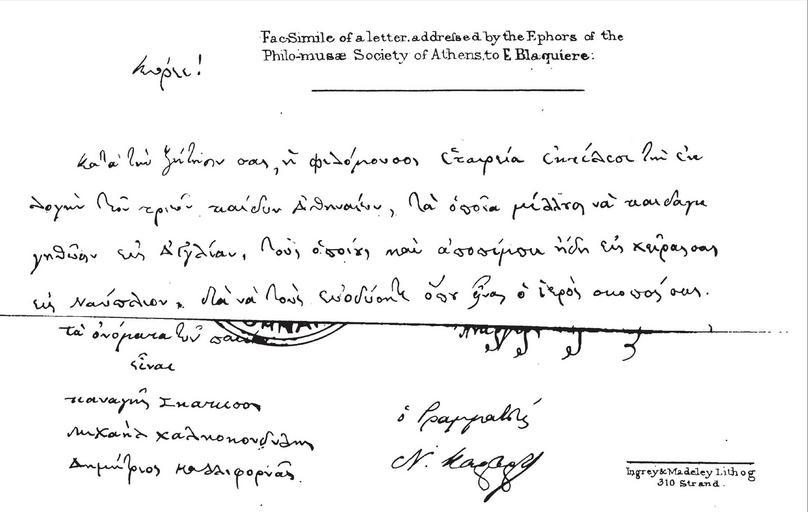 Fac-Simile of a letter. addressed by the Ephors of the
Philo-musæ Society of Athens, to E Blaquiere:
Κύριε!
κατὰ τὴν ζήτησιν σας, ἡ φιλόμουσος ἑταιρεία ἐκτέλεσε τὴν ἐκ
λογὴν τῶν τριῶν παίδων Ἀθηναίων, τὰ ὁποῖα μέλλουν νὰ παιδαγω
γηθῶσιν εἰς Ἀγγλίαν, τοὺς ὁποίους καὶ ἀποπέμπει ἤδη εἰς χεῖρας σας
εἰς Ναύπλιον, διὰ νὰ τοὺς εὐοδώσητε ὅπου εἶναι ὁ ἱερὸς σκοπός σας.
τὰ ὀνόματα τῶν
εἶναι
παναγῆς
μιχαὴλ χαλκοκονδύλης
Δημήτριος καλλιφορνᾶς
ὁ Γραμματεὺς
Ν.
Ingrey & Madeley Lithog
310 Strand.